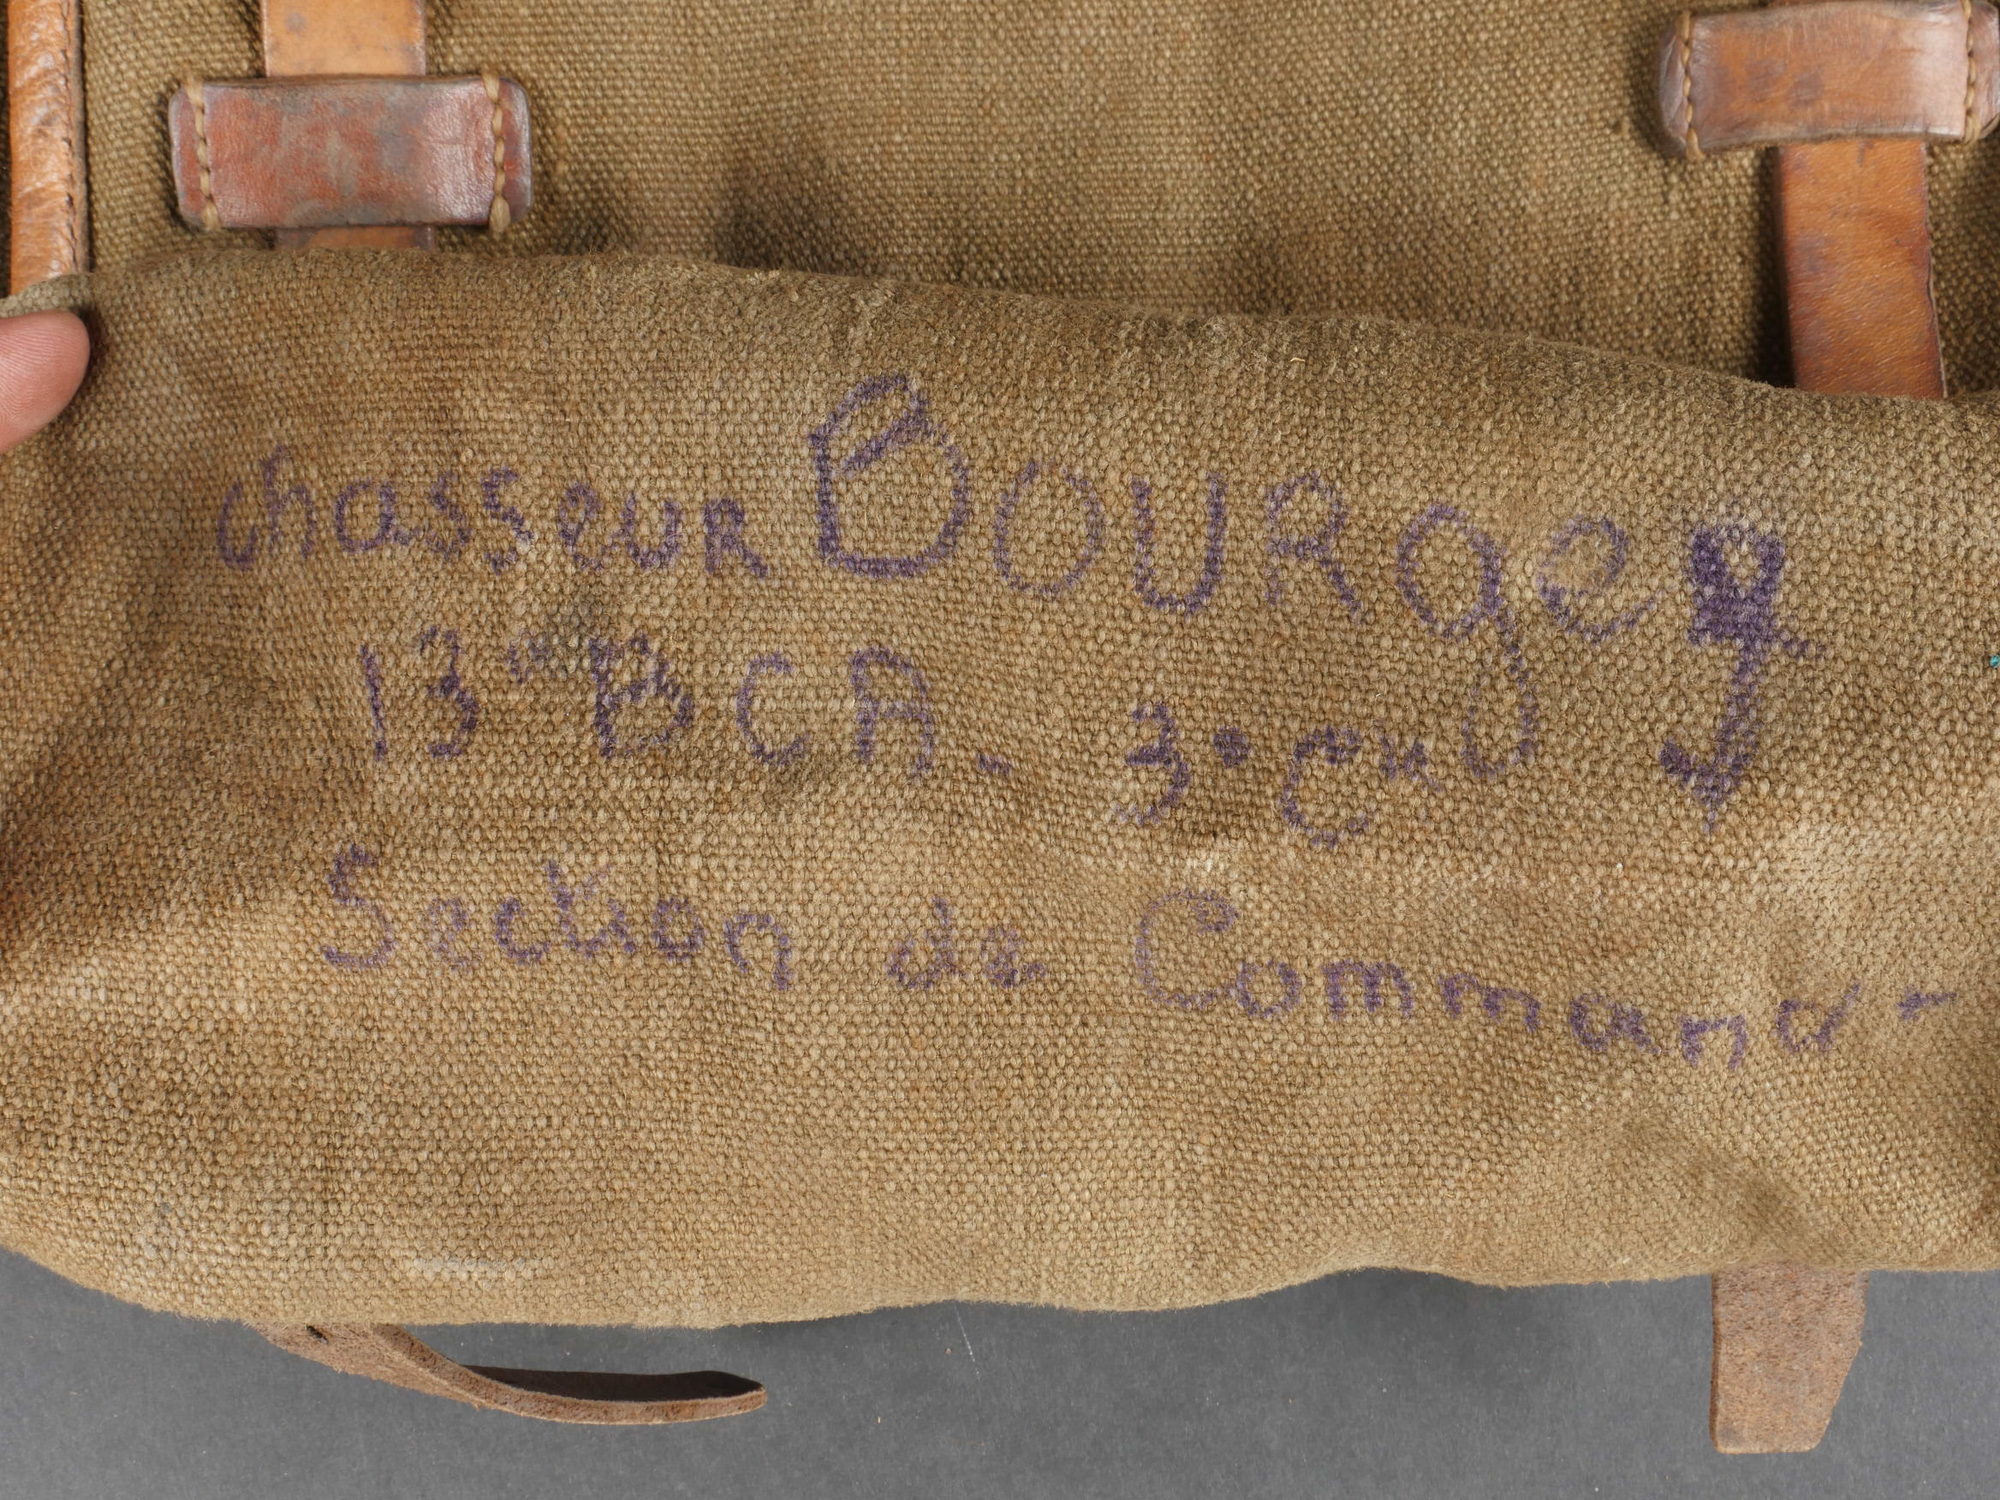 chasseur BOURgey
13ème BCA - 3e Cie
Section de Command -